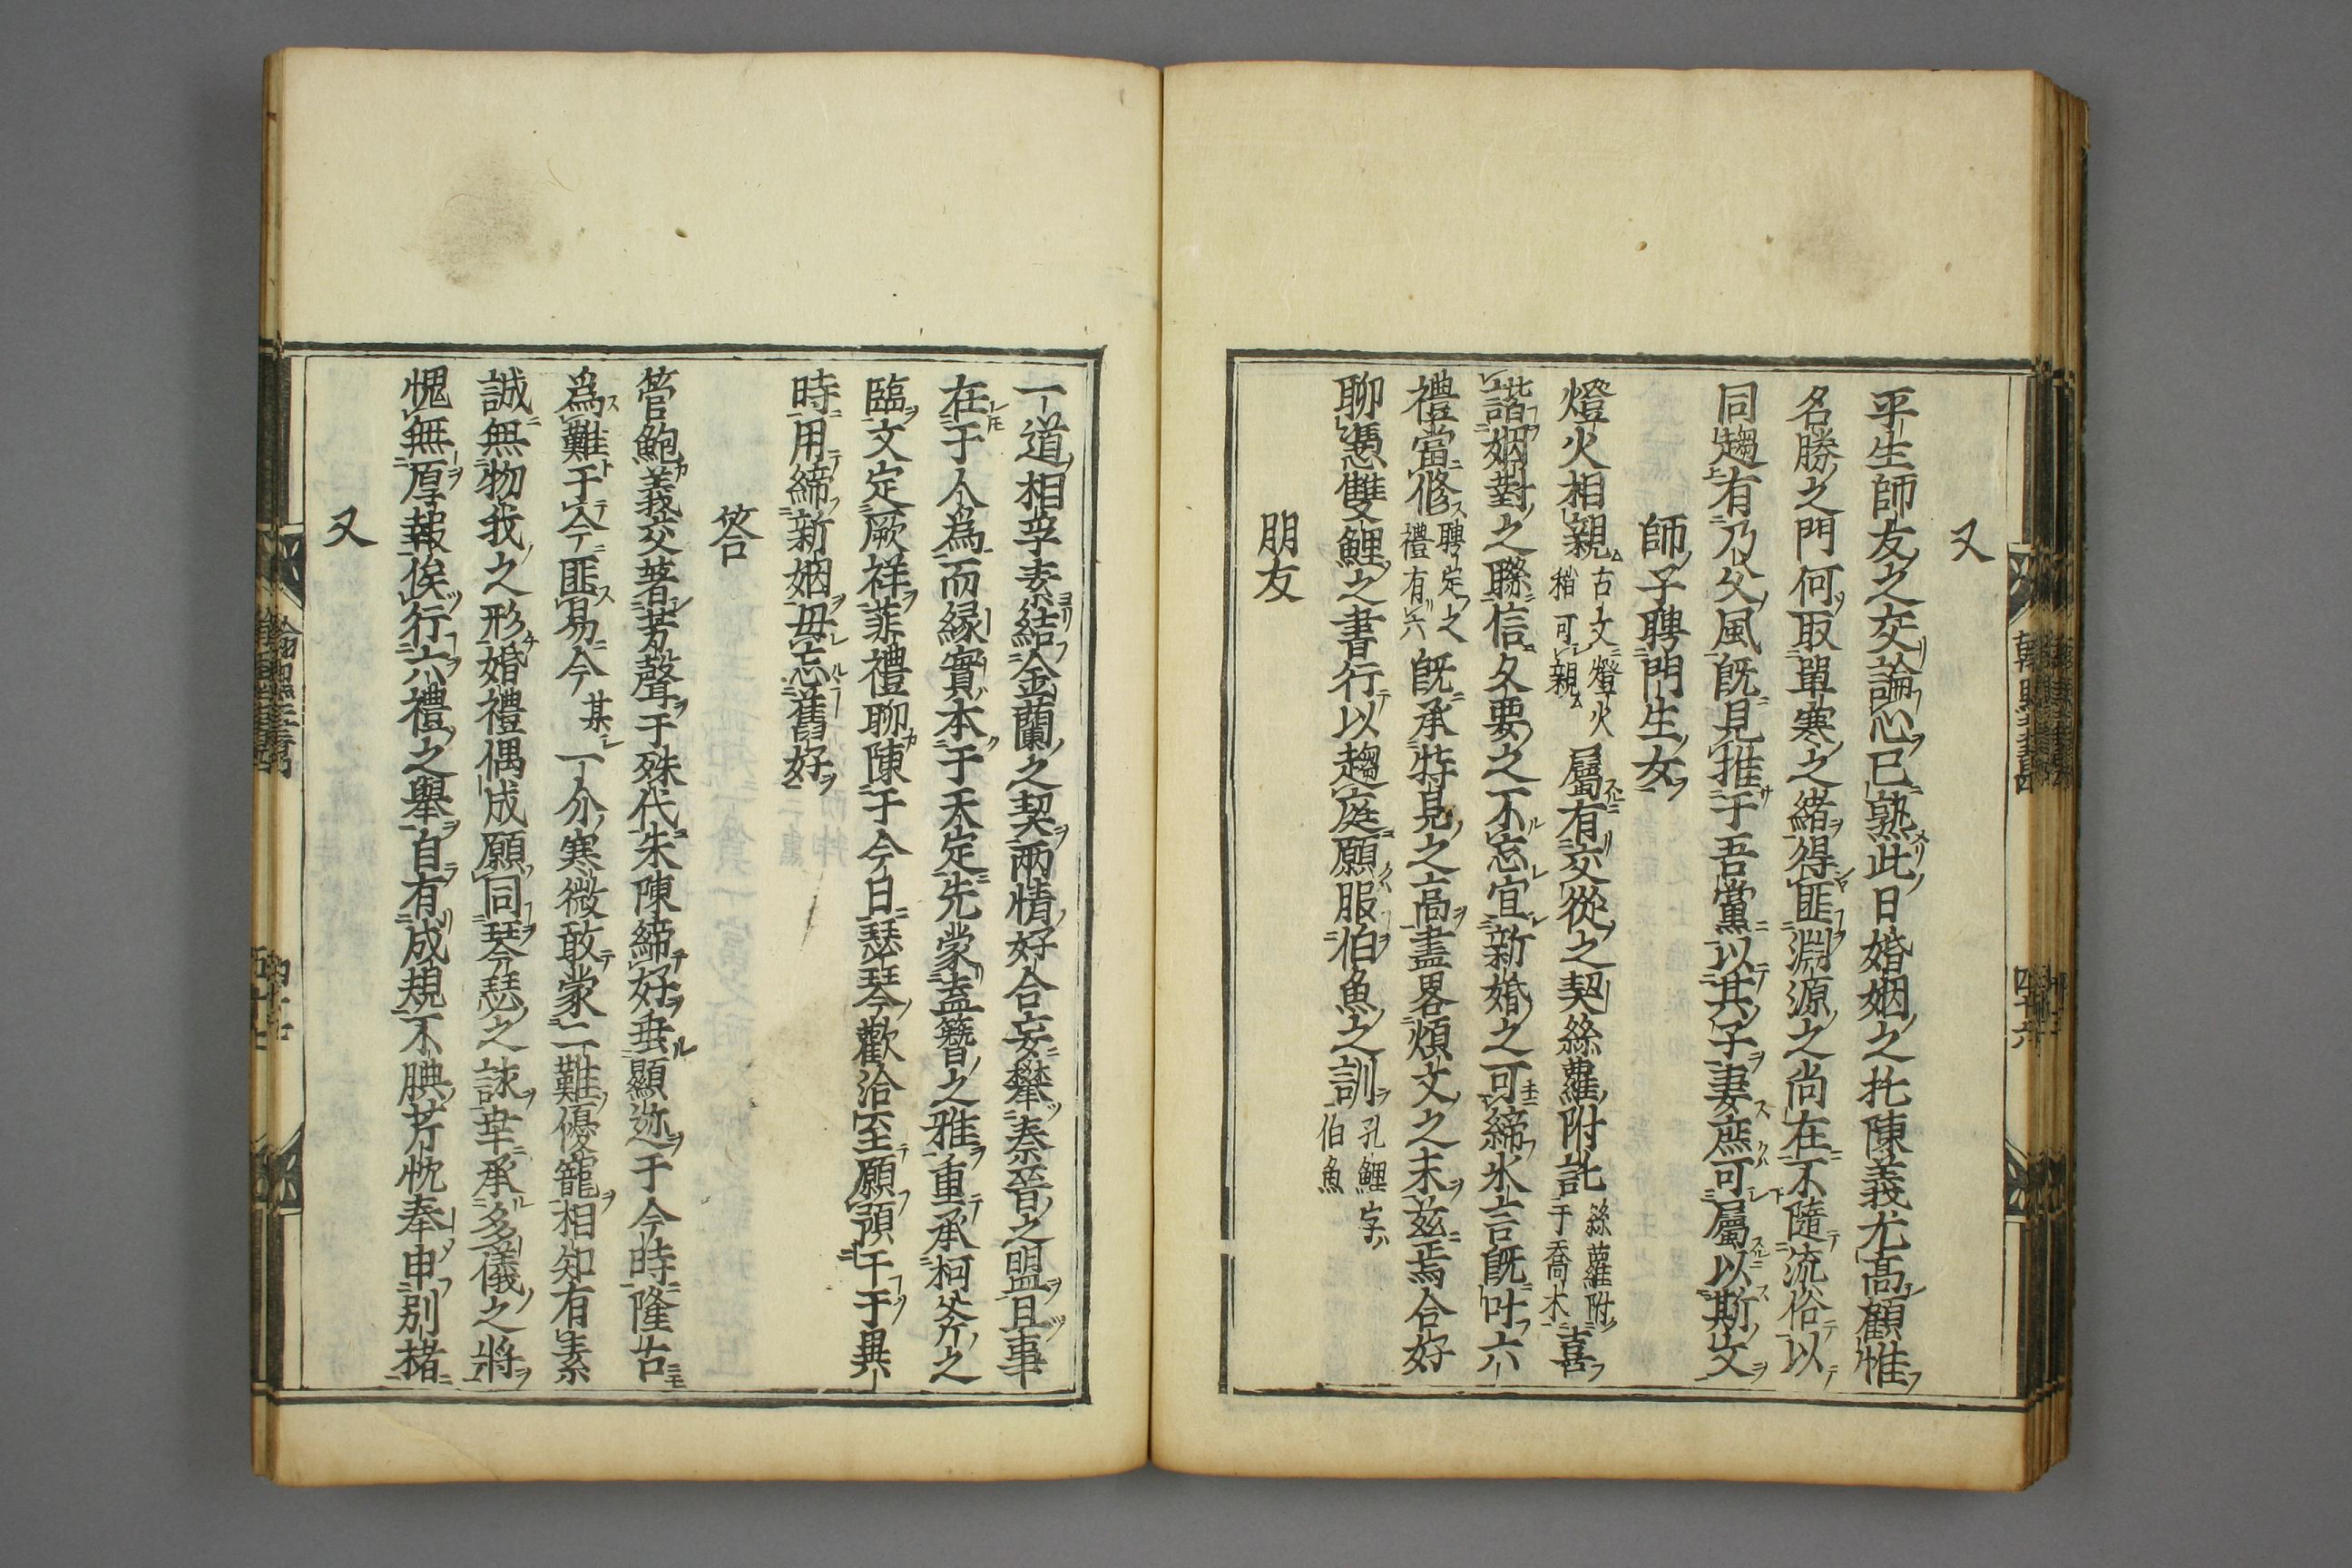 又
平生師友之交論心已熟此日婚姻之托陳義尤高顧惟
名勝之門何取單寒之緒得匪淵源之尚在不隨流俗以
同趨有乃父風既見推于吾黨以其子妻庶可屬以斯文
師子聘門生女
燈火相親古文燈火稍可親屬有交從之契絲蘿附託絲蘿附于喬木喜
諧姻對之聯信久要之不忘宜新婚之可締氷言既叶六
禮當修聘定之禮有六既承特見之高盡畧煩文之末茲焉合好
聊憑雙鯉之書行以趨庭願服伯魚之訓孔鯉字伯魚
朋友
一道相孚素結金蘭之契兩情好合妄攀秦晉之盟且事
在于人為而縁實本于天定先蒙盍簪之雅重承柯斧之
臨文定厥祥菲禮聊陳于今日瑟琴歡洽至願預于于異
時用締新姻毋忘舊好
答
管鮑義交著芳聲于殊代朱陳締好垂顯迹于今時隆古
為難于今匪易今某一介寒微敢蒙二難優寵相知有素
誠無物我之形婚禮偶成願同琴瑟之詠幸承多儀之將
愧無厚報俟行六禮之舉自有成規不腆芹忱奉申別楮
又